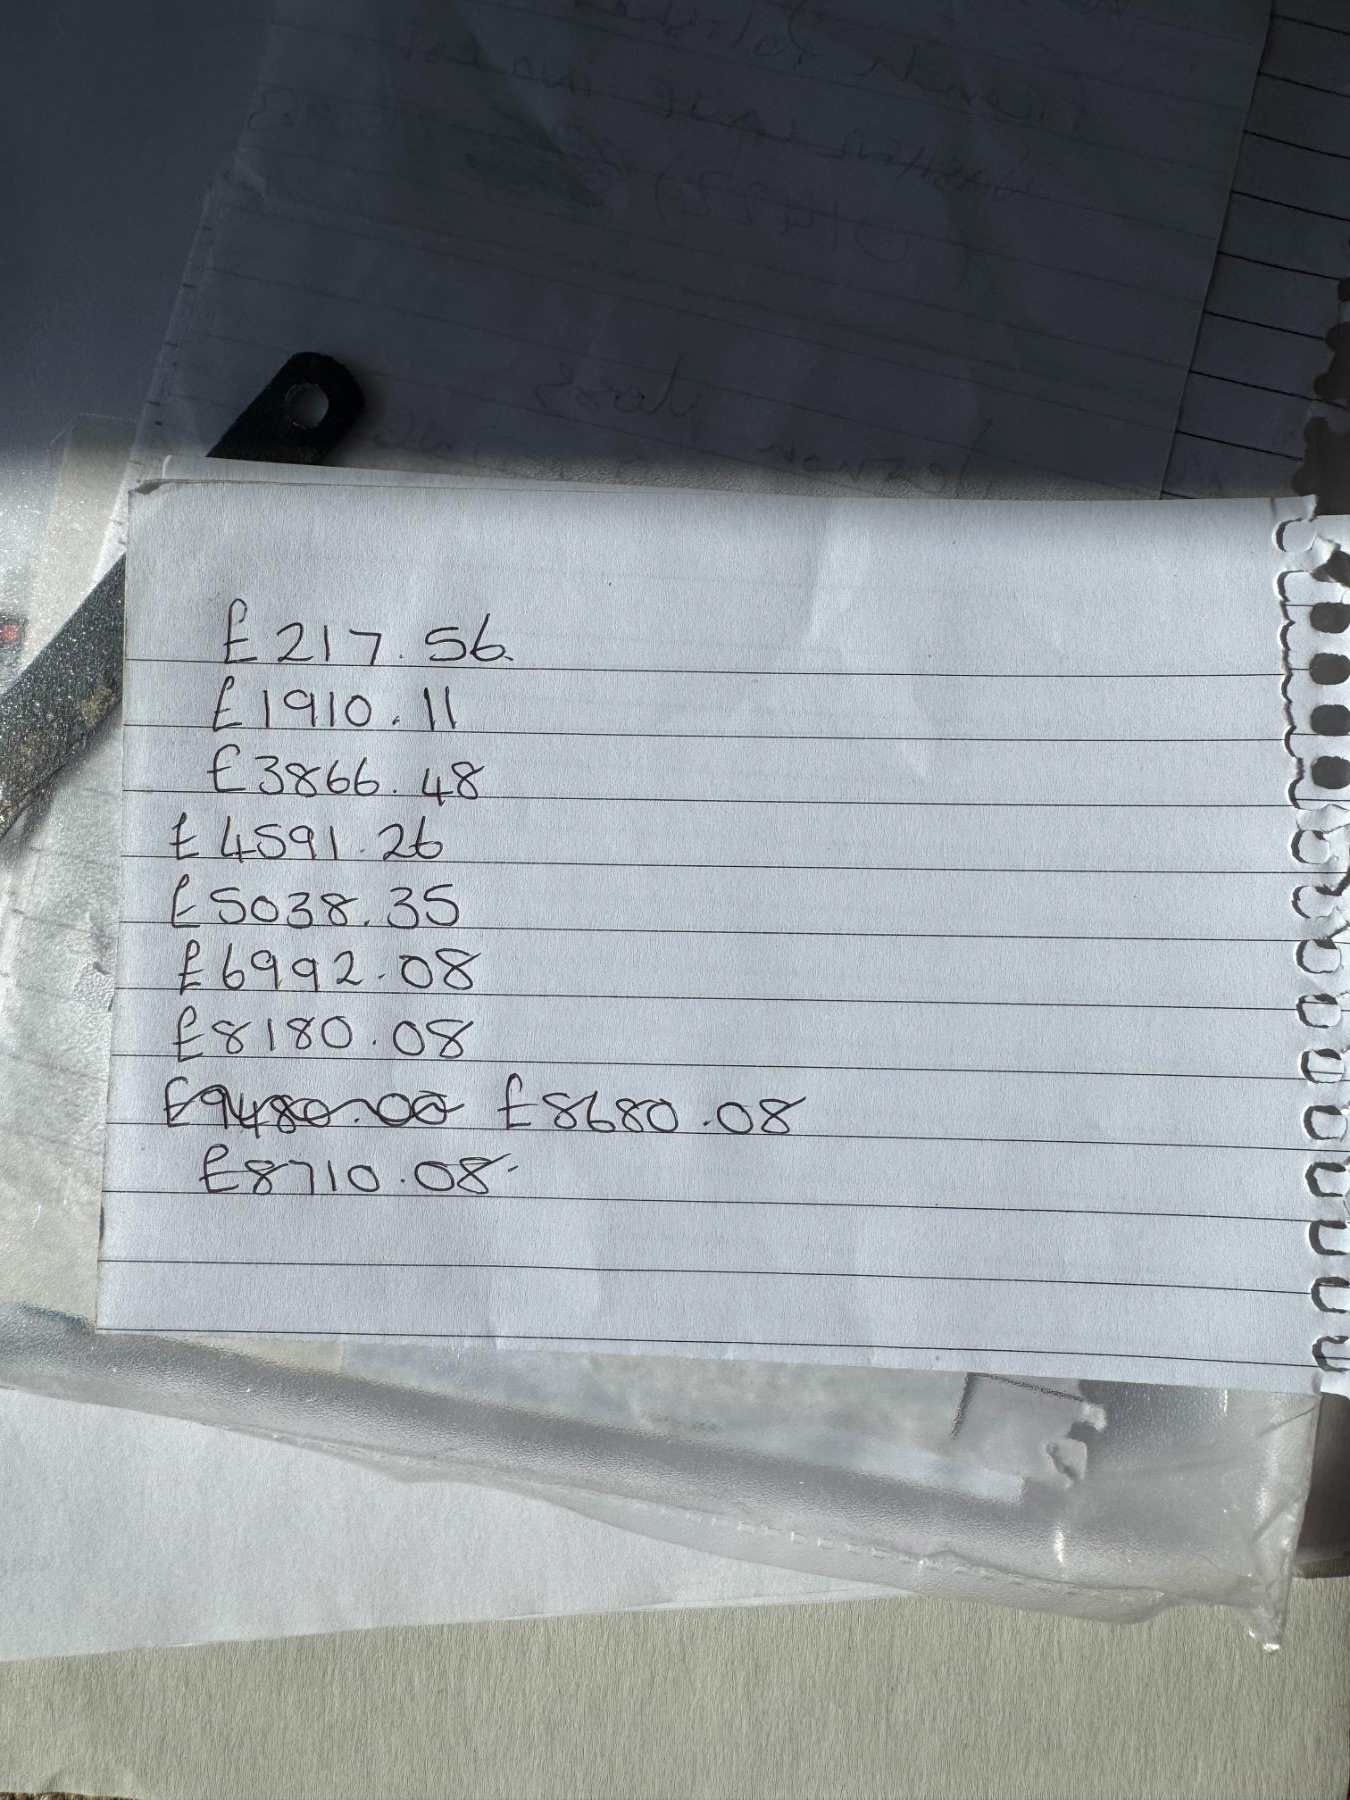 £217.56
£1910.11
£3866.48
£4591.26
£5038.35
£6992.08
£8180.08
£9480.00 £8680.08
£8710.08